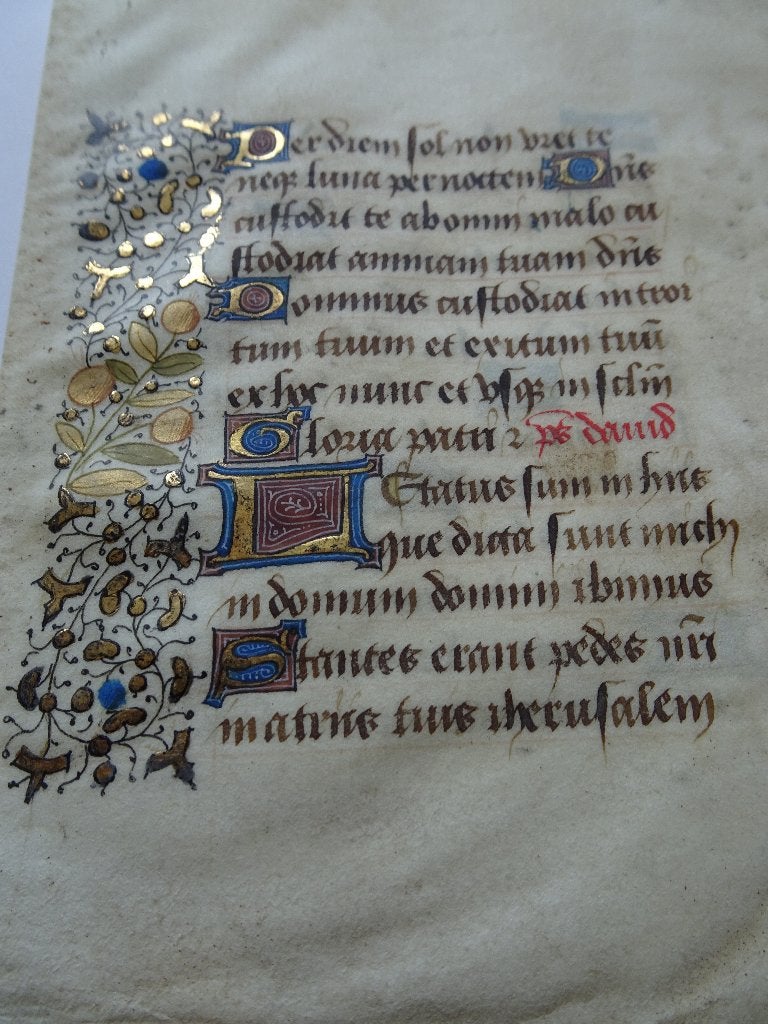 Per diem sol non vret te
neq3 luna per noctem Dn̄s
custodit te ab omni malo cu
stodiat animam tuam dn̄s
Dominus custodiat introi
tum tuum et exitum tuū
ex hoc nunc et vsq3 in sc̄lm̄
Gloria patri ⁊ ps̄ dauid
Letatus sum in hiis
que dicta sunt michi
in domum domini ibimus
Stantes erant pedes nr̄i
in atriis tuis iherusalem